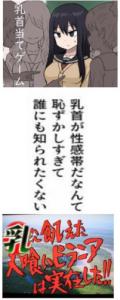 乳首当てゲーム
乳首が性感帯だなんて
恥ずかしすぎて
誰にも知られたくない
乳に飢えた
人喰いピラニア
は実在した!!